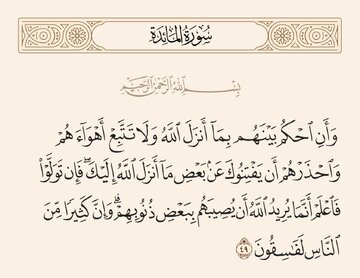 سُورَةُ المَائِدَة
بِسْمِ اللَّهِ الرَّحْمَٰنِ الرَّحِيمِ
وَأَنِ ٱحْكُم بَيْنَهُم بِمَآ أَنزَلَ ٱللَّهُ وَلَا تَتَّبِعْ أَهْوَآءَهُمْ
وَٱحْذَرْهُمْ أَن يَفْتِنُوكَ عَنۢ بَعْضِ مَآ أَنزَلَ ٱللَّهُ إِلَيْكَ ۖ فَإِن تَوَلَّوْا۟
فَٱعْلَمْ أَنَّمَا يُرِيدُ ٱللَّهُ أَن يُصِيبَهُم بِبَعْضِ ذُنُوبِهِمْ ۗ وَإِنَّ كَثِيرًا مِّنَ
ٱلنَّاسِ لَفَـٰسِقُونَ ٤٩